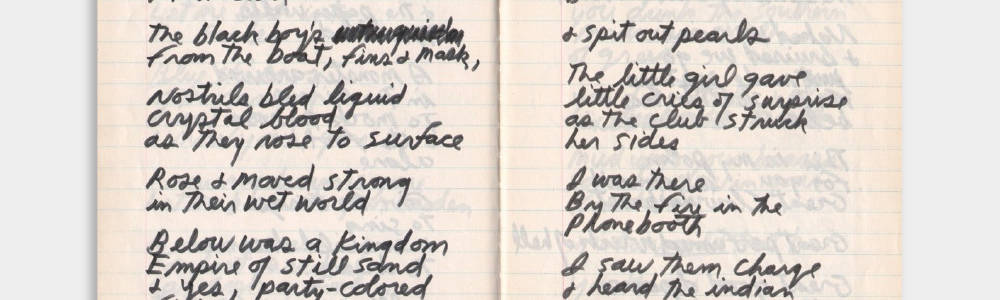 The black boy's
from the boat, fins & mask,
Nostrils bled liquid
crystal blood
as they rose to surface
Rose & moved strong
in their wet world
Below was a Kingdom
Empire of still sand
& yes, party-colored
& spit out pearls
The little girl gave
little cries of surprise
as the club struck
her sides
I was there
By the fire in the
Phonebooth
I saw them charge
& heard the indian